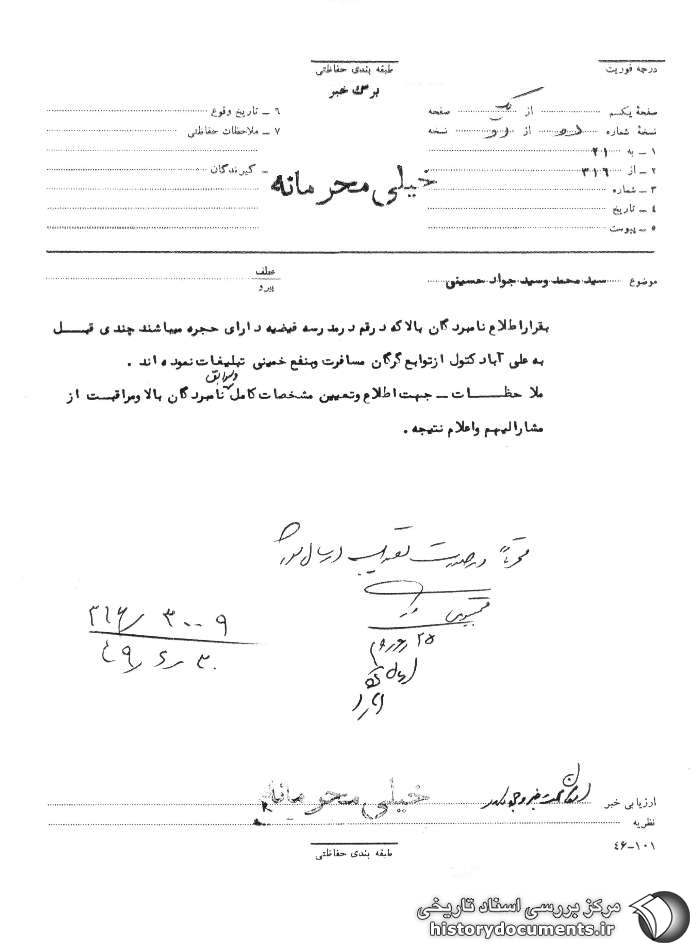 درجه فوریت
طبقه بندی حفاظتی
برگ خبر
صفحهٔ یکم از یک صفحه
نسخهٔ شماره از نسخه
۱ – به ۲۱
۲ – از ۳۱۶
۳ – شماره
۴ – تاریخ
۵ – پیوست
۶ – تاریخ وقوع
۷ – ملاحظات حفاظتی
– گیرندگان
خیلی محرمانه
موضوع سید محمد وسید جواد حسینی
عطف
پیرو
بقراراطلاع نامبردگان بالاکه درقم درمدرسه فیضیه دارای حجره میباشند چندی قبل
به علی آباد کتول ازتوابع گرگان مسافرت وبنفع خمینی تبلیغات نموده اند .
وسوابق
ملاحظات – جهت اطلاع وتعیین مشخصات کامل نامبردگان بالا ومراقبت از
مشارالیهم واعلام نتیجه .
۳۱۶/ ۳۰۰۹
۴۹/۶/۳۰
ارزیابی خبر
خیلی محرمانه
نظریه
۴۶-۱۰۱
طبقه بندی حفاظتی
مرکز بررسی اسناد تاریخی
historydocuments.ir